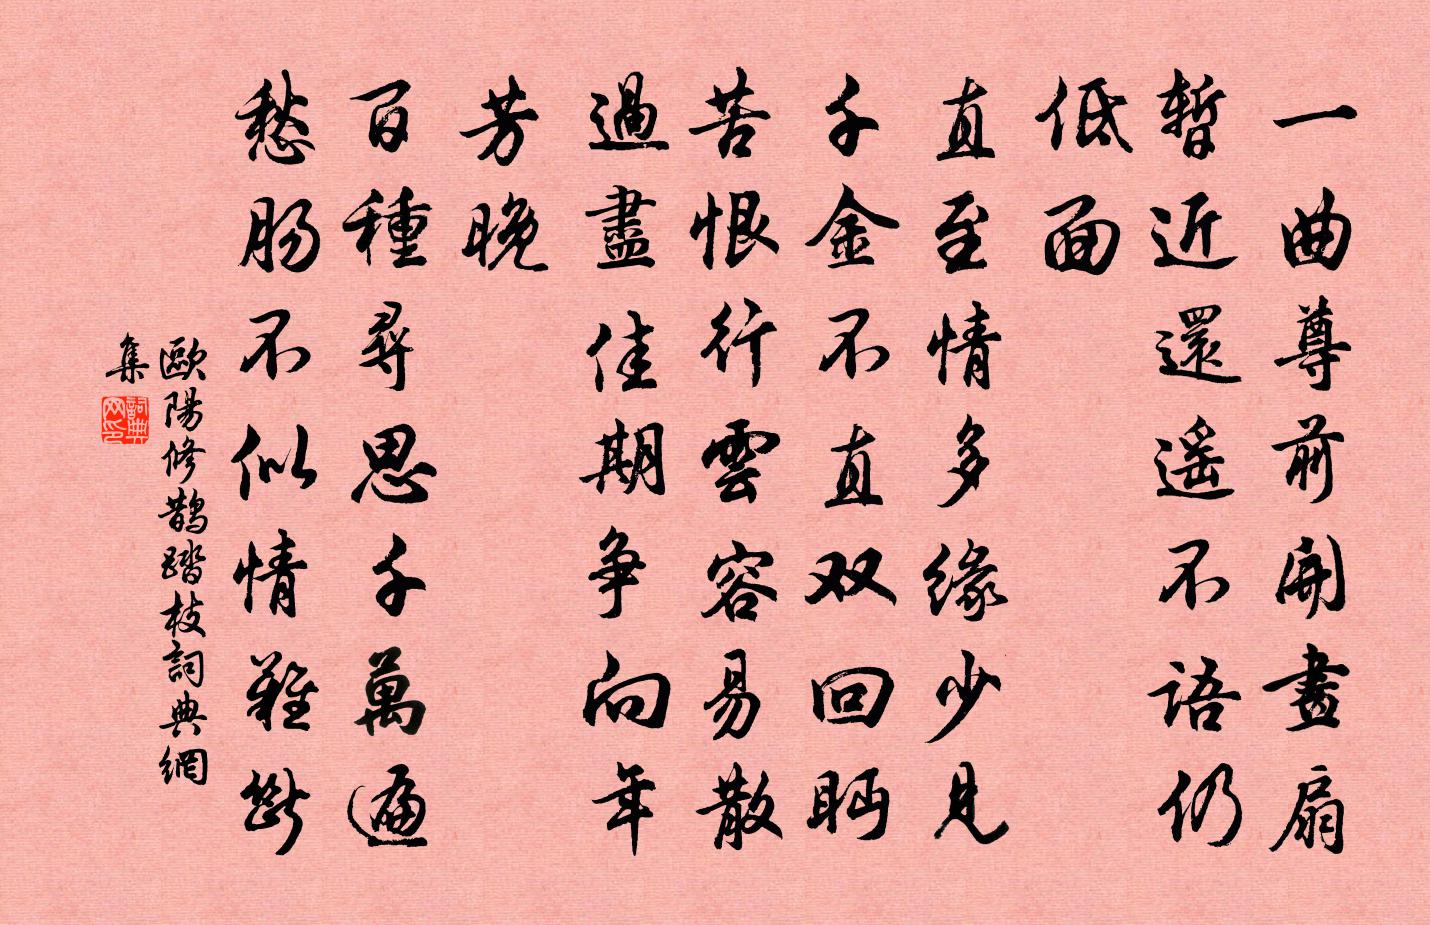 一曲尊前開畫扇
暫近還遥不語仍
低面
直至情多緣少見
千金不直双回眄
苦恨行雲容易散
過盡佳期争向年
芳晚
百種尋思千萬遍
愁腸不似情難斷
歐陽修鵲踏枝詞典網
集
詞典
网印